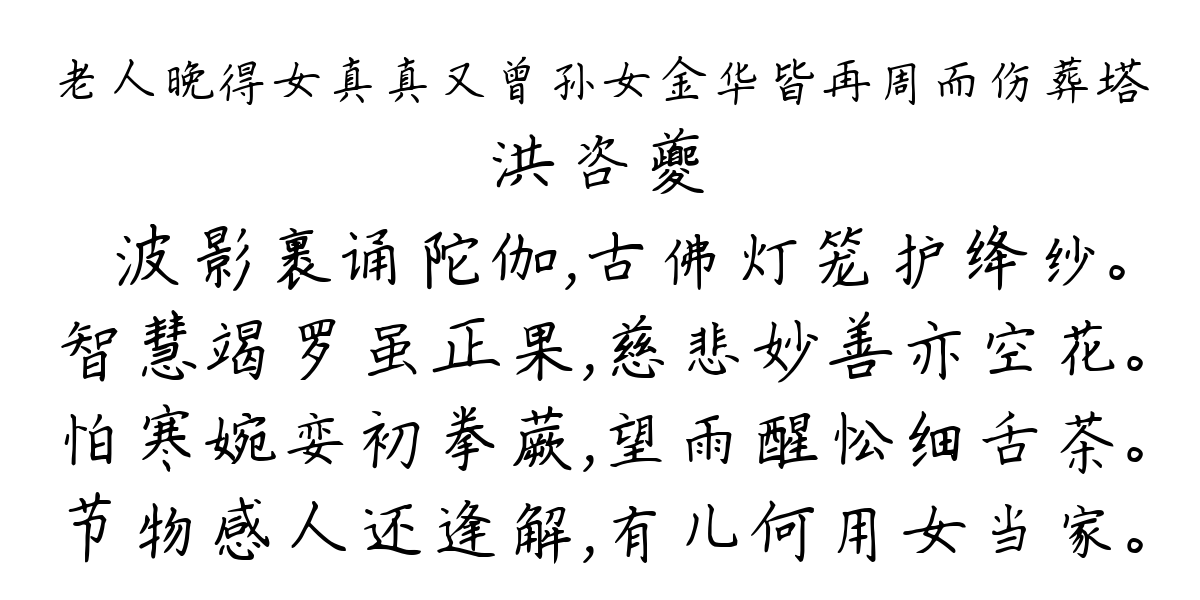 老人晚得女真真又曾孙女金华皆再周而伤葬塔
洪咨夔
波影裹诵陀伽,古佛灯笼护绛纱。
智慧竭罗虽正果,慈悲妙善亦空花。
怕寒婉娈初拳蕨,望雨醒忪细舌茶。
节物感人还逢解,有儿何用女当家。